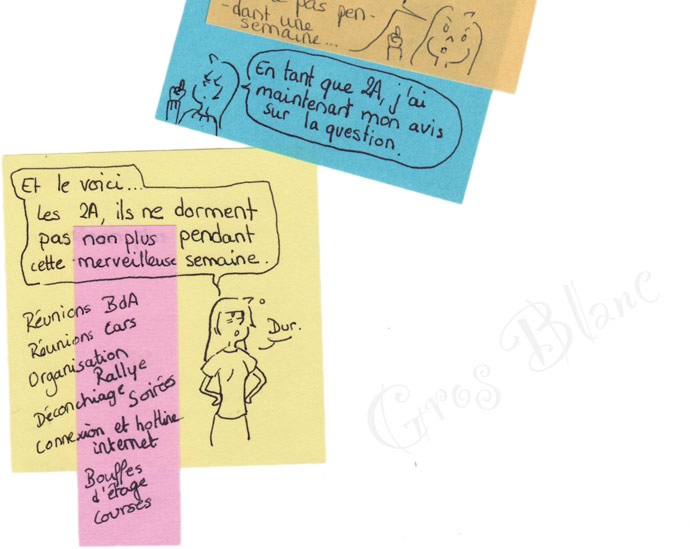 pas pen-
-dant une
semaine...
En tant que 2A, j'ai
maintenant mon avis
sur la question.
Et le voici...
Les 2A, ils ne dorment
pas non plus pendant
cette merveilleuse semaine.
Dur.
Réunions BdA
Réunions Cars
Organisation
Rallye
Déconchiage Soirées
Connexion et hotline
internet
Bouffes
d'étage
Courses
Gros Blanc